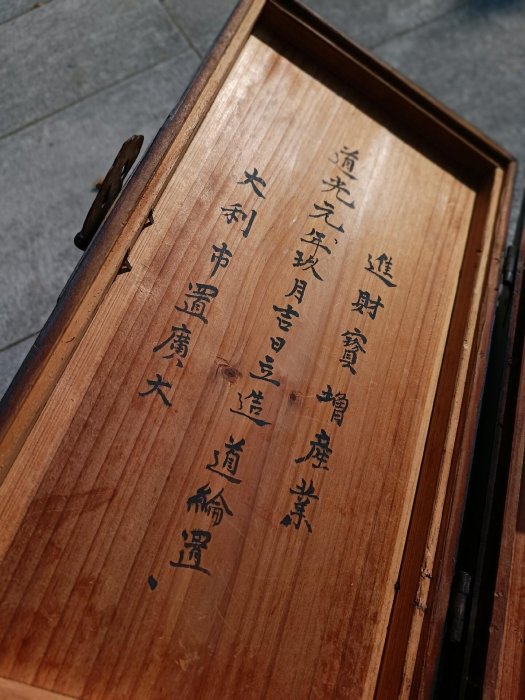 進財寳增產業
道光元年玖月吉日立造 道綸置
大利市置廣大